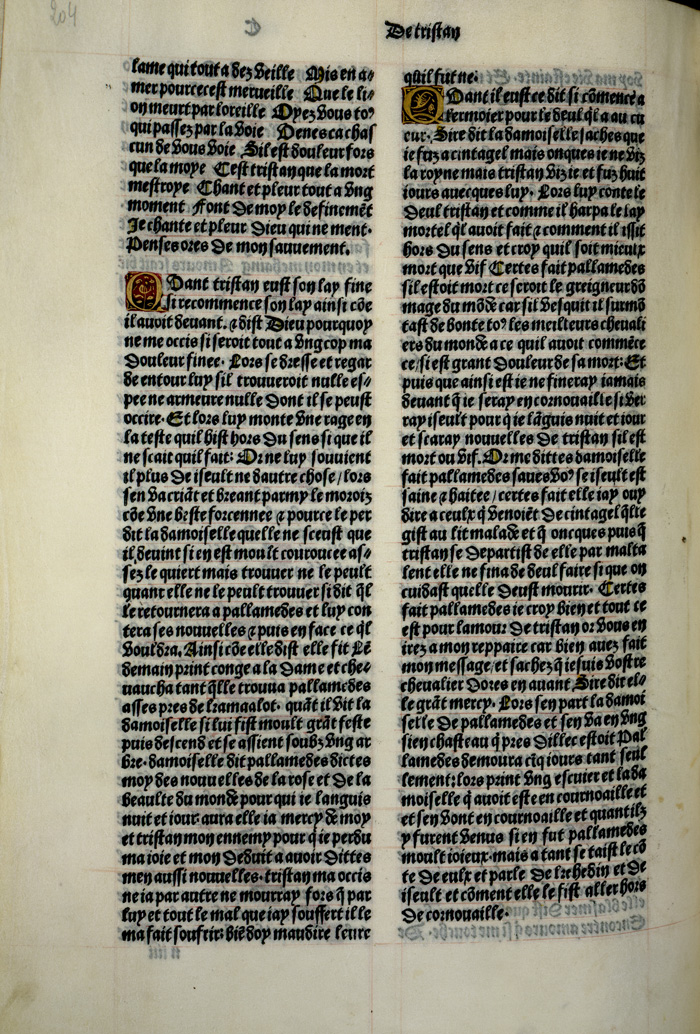 204
De tristan
lame qui tout a dez veille Mis en a-
mer pource cest merueille Que le li-
on meurt par loreille Oyez vous to9
qui passez par la voie Venes ca chas
cun de vous voie Sil est douleur fors
que la moye Cest tristan que la mort
mestroye Chant et pleur tout a vng
moment Font de moy le definemēt
Je chante et pleur Dieu qui ne ment.
Penses ores de mon sauuement.
Quant tristan eust son lay fine
si recommence son lay ainsi cōe
il auoit deuant. & dist Dieu pourquoy
ne me occis si seroit tout a vng cop ma
douleur finee. Lors se dresse et regar
de entour luy sil trouueroit nulle es-
pee ne armeure nulle dont il se peust
occire. Et lors luy monte vne rage en
la teste quil hist hors du sens si que il
ne scait quil fait: Or ne luy souuient
il plus de iseult ne dautre chose / lors
sen va criāt et breant parmy le moroiz
cōe vne beste forcennee & pource le per
dit la damoiselle quelle ne sceust que
il deuint si en est moult couroucee as-
sez le quiert mais trouuer ne le peult
quant elle ne le peult trouuer si dit ql
le retournera a pallamedes et luy con
tera ses nouuelles & puis en face ce ql
vouldra. Ainsi cōe elle dist elle fit Lē
demain print conge a la dame et che-
uaucha tant qlle trouua pallamedes
asses pres de kramaalot. quāt il vit la
damoiselle si lui fist moult grāt feste
puis descend et se assient soubz vng ar
bre. damoiselle dit pallamedes dictes
moy des nouuelles de la rose et de la
beaulte du monde pour qui ie languis
nuit et iour aura elle ia mercy de moy
et tristan mon ennemy pour q ie perdu
ma ioie et mon deduit a auoir dittes
men aussi nouuelles. tristan ma occis
ne ia par autre ne mourray fors q par
luy et tout le mal que iay souffert il le
ma fait soufrir: biē doy maudire leure
quil fut ne.
Quant il eust ce dit si cōmence a
lermoier pour le deul ql a au cu
cur. Sire dit la damoiselle saches que
ie fuz a cintagel mais onques ie ne viz
la royne mais tristan viz ie et fuz huit
iours auecques luy. Lors luy conte le
deul tristan et comme il harpa le lay
mortel ql auoit fait & comment il issit
hors du sens et croy quil soit mieulx
mort que vif Certes fait pallamedes
sil estoit mort ce seroit le greigneur dō
mage du mōde car sil vesquit il surmō
tast de bonte to9 les meilleurs cheuali
ers du monde a ce quil auoit commēce
ce / si est grant douleur de sa mort: Et
puis que ainsi est ie ne fineray iamais
deuant q ie seray en cornouaille si ver
ray iseult pour q ie lāguis nuit et iour
et scaray nouuelles de tristan sil est
mort ou vif. Or me dittes damoiselle
fait pallamedes saues vo9 se iseult est
saine & haitee / certes fait elle iay ouy
dire a ceulx q venoiēt de cintagel qlle
gist au lit malade et q oncques puis q
tristan se departist de elle par malta
lent elle ne fina de deul faire si que on
cuidast quelle deust mourir. Certes
fait pallamedes ie croy bien et tout ce
est pour lamour de tristan or vous en
irez a mon reppaire car bien auez fait
mon message / et sachez q ie suis vostre
cheualier dores en auant Sire dit el-
le grāt mercy. Lors sen part la damoi
selle de pallamedes et sen va en vng
sien chasteau q pres dillec estoit Pal
lamedes demoura cīq iours tant seul
lement: lors print vng escuier et la da
moiselle q auoit este en cournoaille et
et sen vont en cournoaille et quant ilz
y furent venus si en fut pallamedes
moult ioieux. mais a tant se taist le cō
te de eulx et parle de kehedin et de
iseult et cōment elle le fist aller hors
de cornouaille.